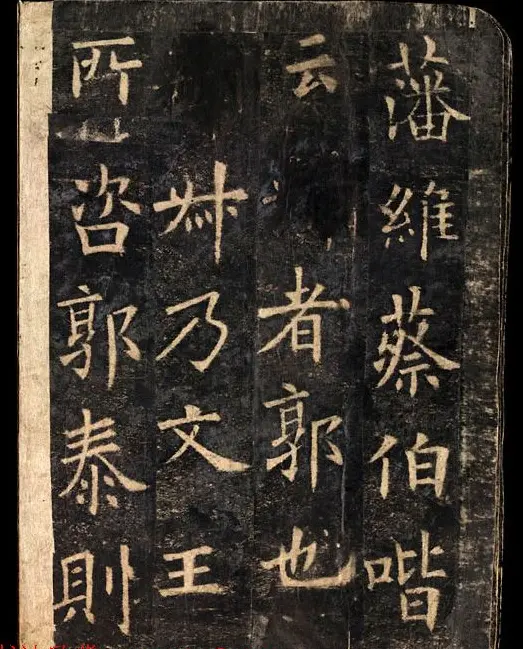 藩維蔡伯喈
云者郭也
乃文王
所咨郭泰則